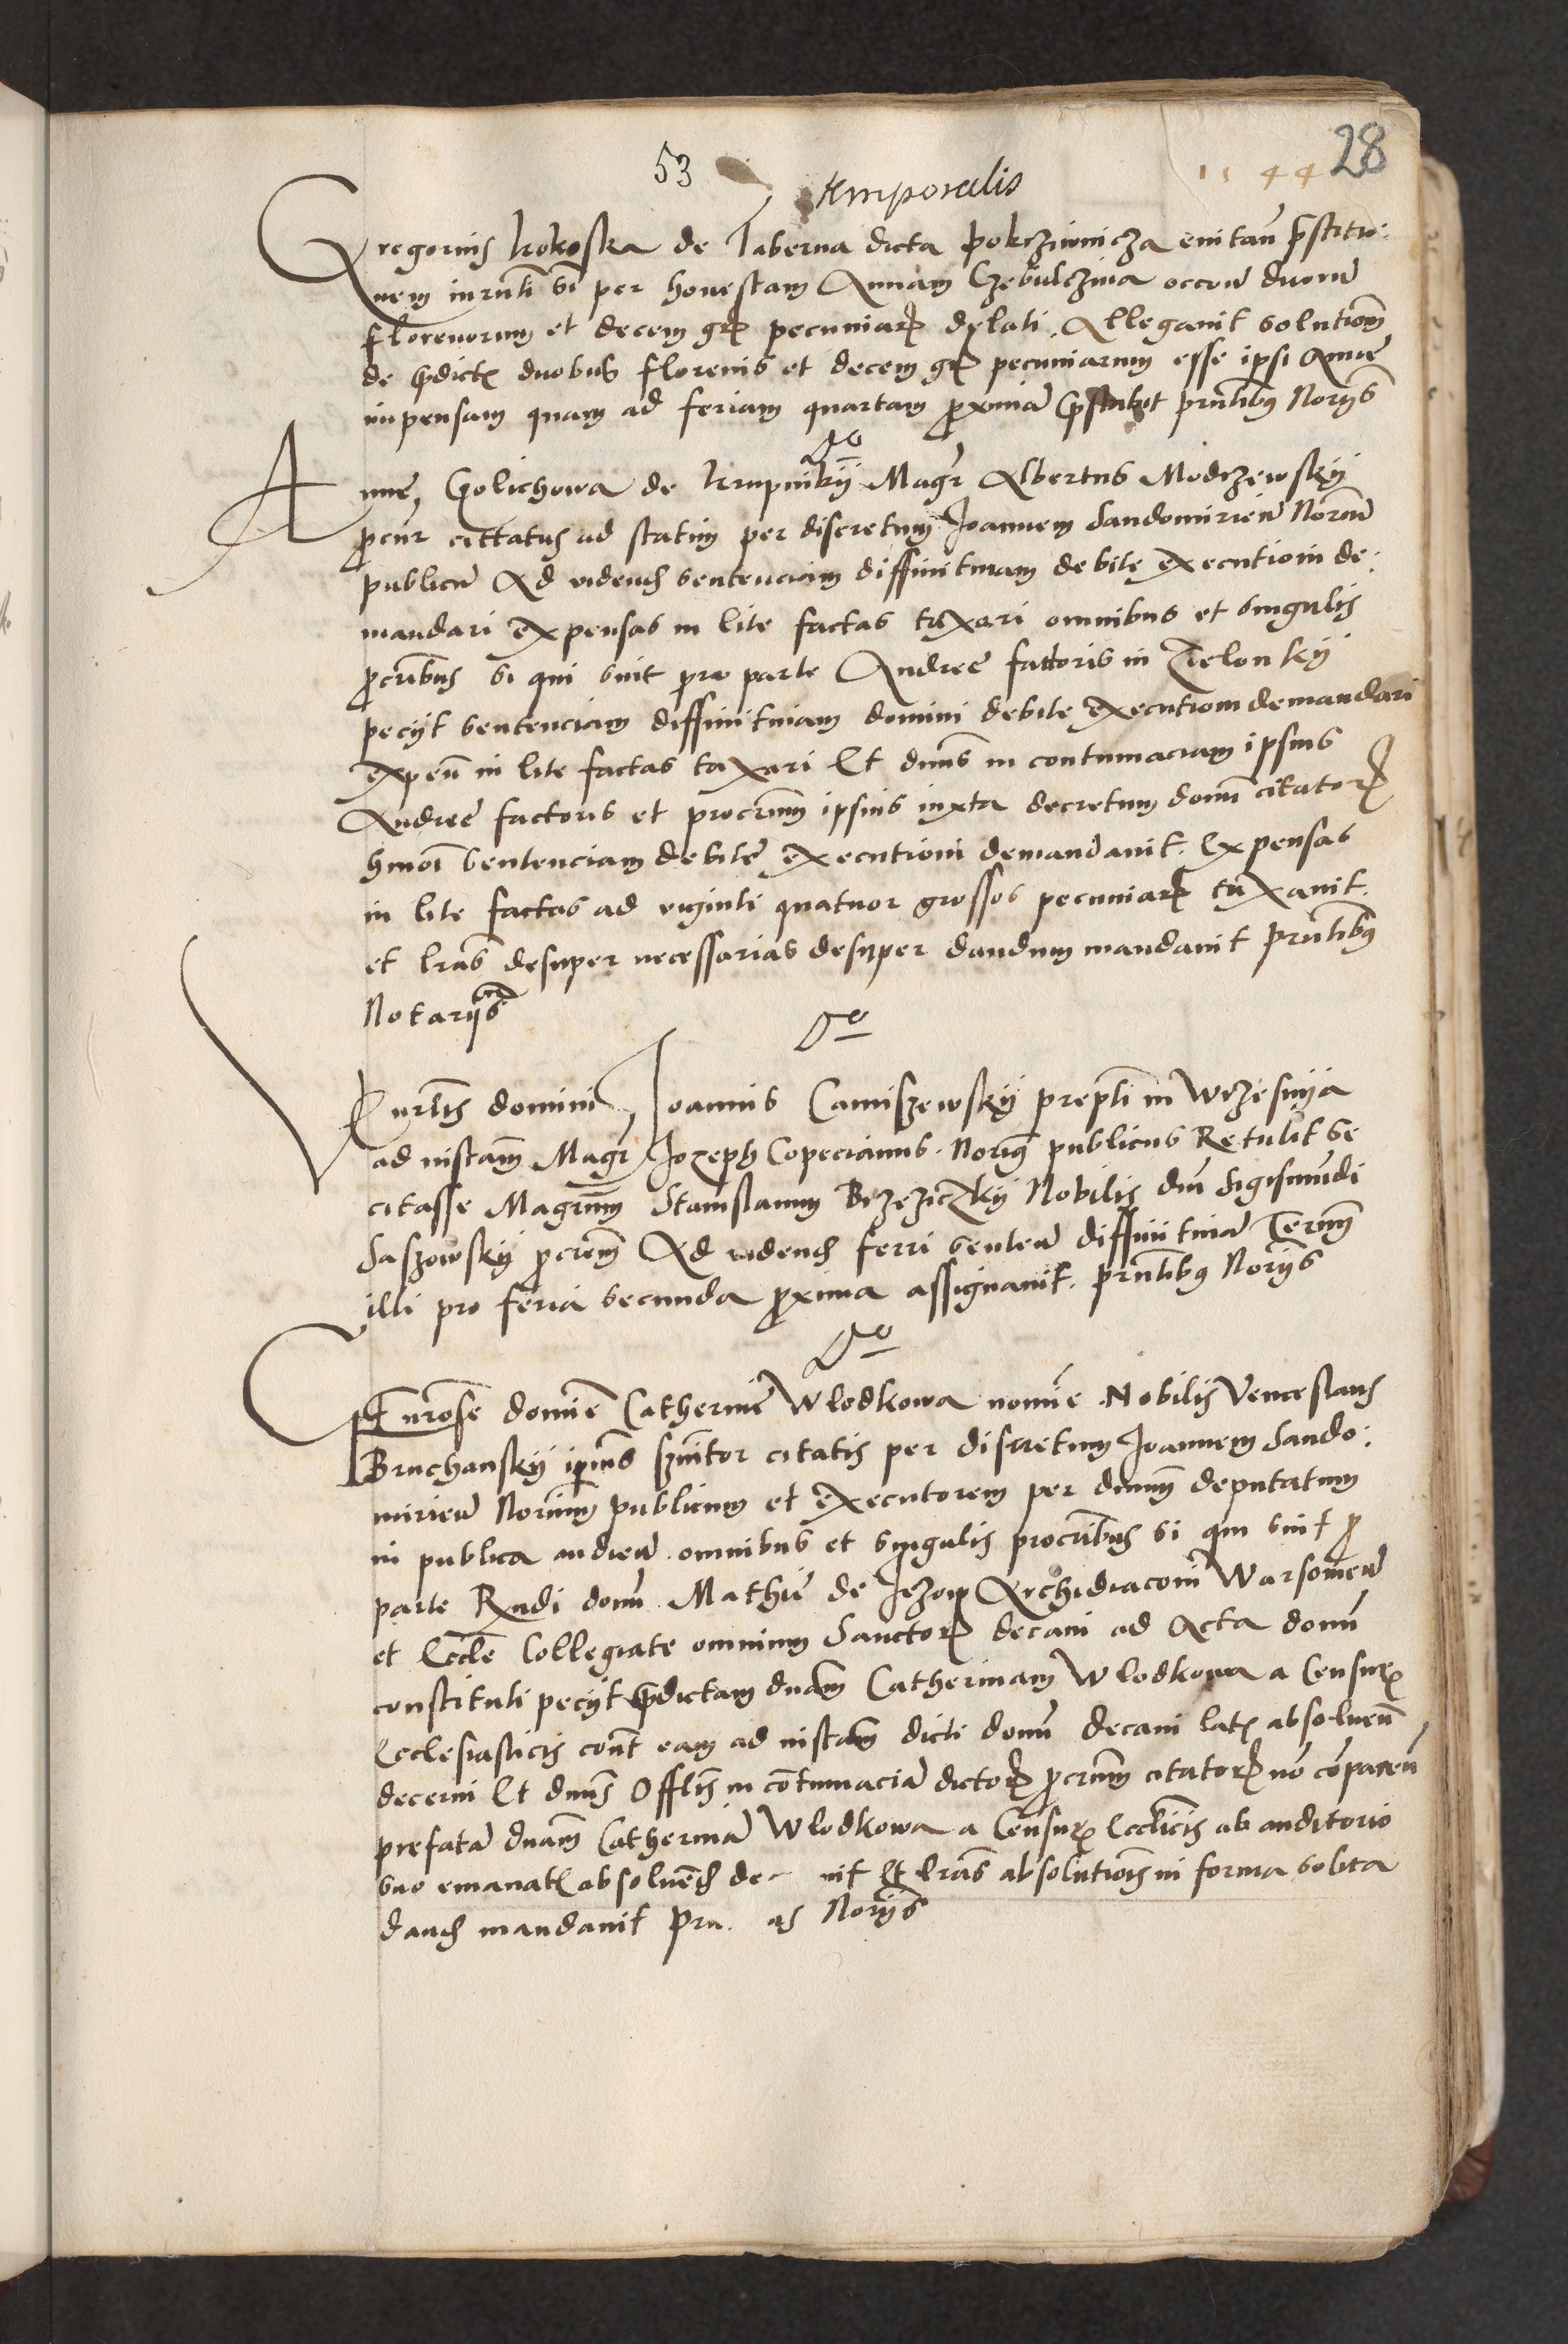 53
temporalis
1544
28
Gregorius kokoska de Taberna dicta pokrziwnicza evitan pstitio:
nem iurnti si per honestam Annam Czebulczina occon duoru
florenorum et decem gr pecuniar delati. Allegavit solutionem
de pdictis duobus florenis et decem gr pecuniarum esse ipsi Anne
impensam quam ad feriam quartam proxima pstabit prntibus Noriis
Do
Anne Golichowa de krupnikij Magr Albertus Modrzewskij
procur cittatus ad statim per discretum Joannem Sandomirien Noriu
publicu Ad vidend sentenciam diffinitivam debite executioni de:
mandari expensas in lite factas taxari omnibus et singulis
procribus si qui sunt pro parte Andree factoris in Zielonkij
pecijt sentenciam diffinitivam domini debite executioni demandari
expen in lite factas taxari Et dnus in contumaciam ipsius
Andree factoris et procrum ipsius iuxta decretum domi citator
hmoi sentenciam debite executioni demandavit. Expensas
in lite factas ad viginti quatuor grossos pecuniar taxavit.
et lras desuper necessarias desuper dandum mandavit prntibus
Notarijs
Do
Vnrlis domini Joannis Camiszewskij prepti in Wrzesnija
ad instam Magr Jozeph Copecianus. Norius publicus Retulit se
citasse Magrum Stanislaum Brzeziczkij Nobilis dni Sigismundi
Saszowskij procrem Ad vidend ferri senten diffinitiva Termn
illi pro feria secunda proxima assignavit. prntibus Noriis
Do
Gnrose domine Catherine Wlodkowa nomine Nobilis Venceslaus
Bruchanskij ipius snitor citatis per discretum Joannem Sando:
mirien Norium publicum et executorem per dnum deputatum
in publica audien omnibus et singulis procribus si qui sunt p
parte Rndi domi Mathie de Jezow Archidiaconi Warsovien
et Eccle Collegiate omnium Sanctor decani ad Acta domi
constituti pecijt pdictam dnam Catherinam Wlodkowa a Censuris
Ecclesiasticis cont eam ad instam dicti domi decani latis absoluen
decerni Et dnus Offlis in contumacia dictor procrum citator no comparen
prefata dnam Catherina Wlodkowa a Censuris Ecclicis ab auditorio
suo emanatis absoluend de vit Et lras absolutiois in forma solita
dand mandavit Prn Noriis